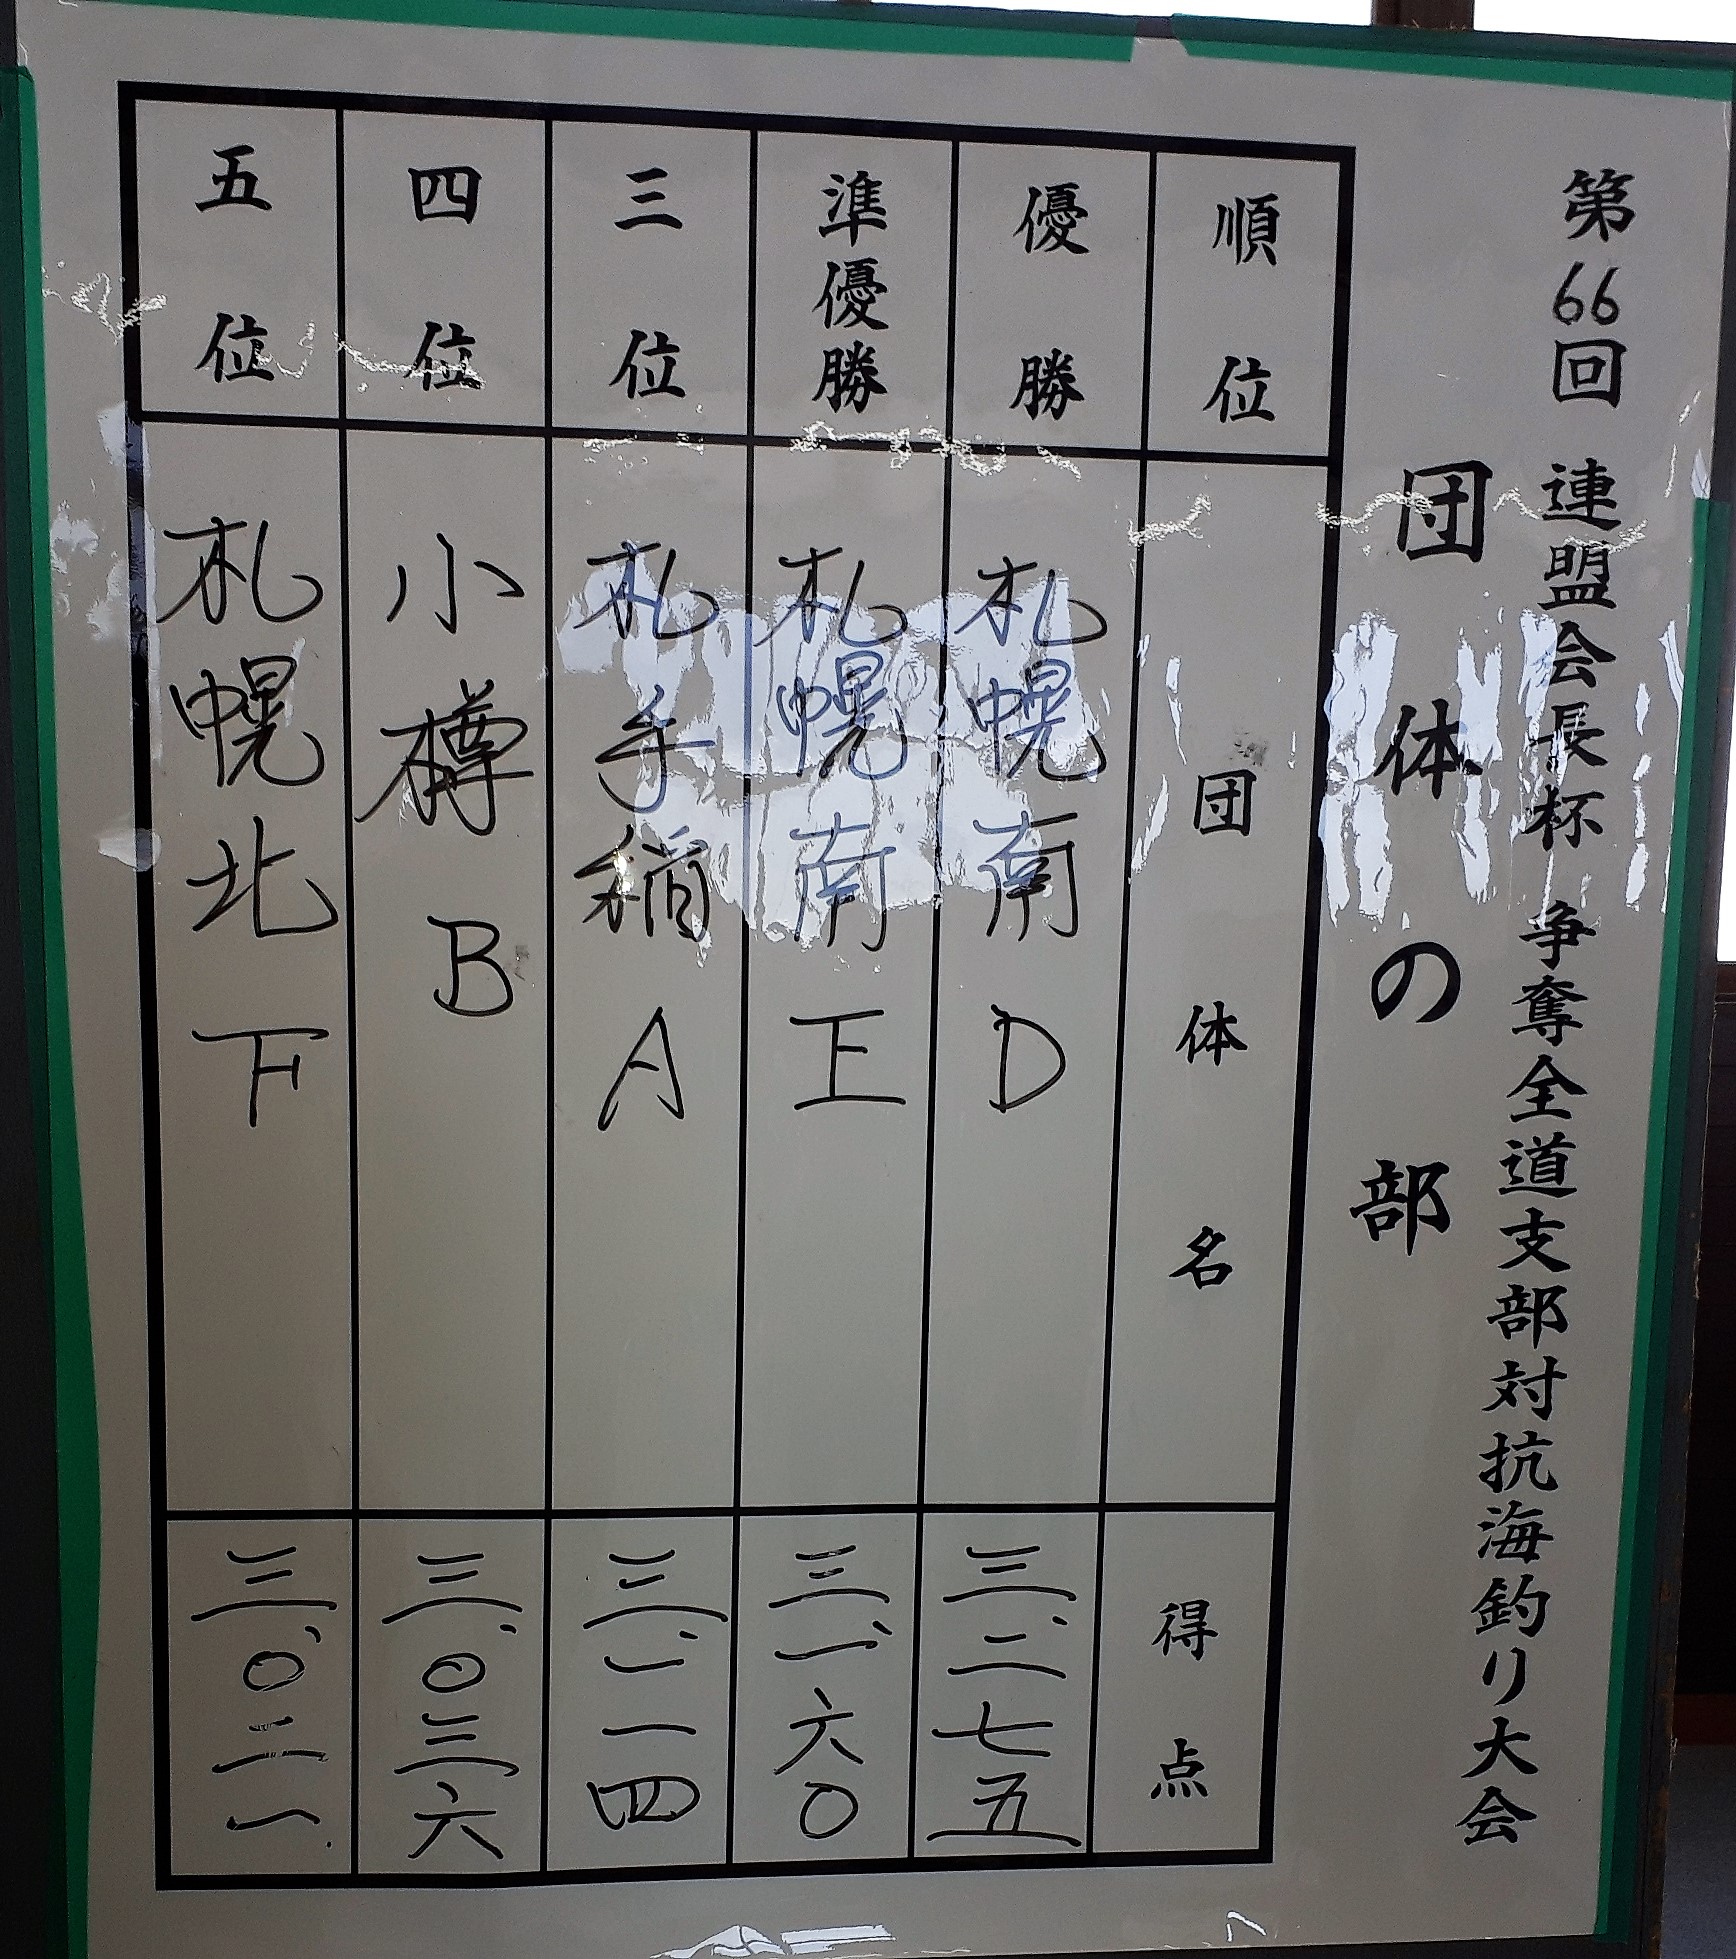 第66回 連盟会長杯 争奪全道支部対抗海釣り大会
団体の部
順位 団体名 得点
優勝 札幌南 D 三、二七五
準優勝 札幌南 E 三、一六〇
三位 札手稲 A 三、一一四
四位 小樽 B 三、〇三六
五位 札幌北 F 三、〇二一